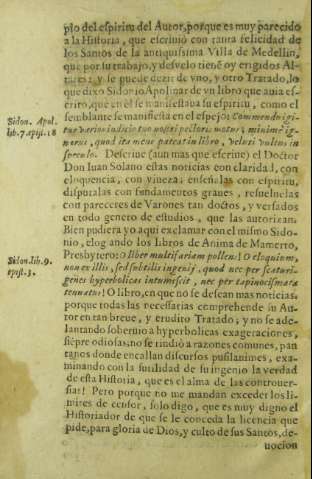 plo del espiritu del Autor, porque es muy parecido
a la Historia, que escriuiò con tanta felicidad de
los Santos de la antiquissima Villa de Medellin,
que por su trabajo, y desvelo tiene oy erigidos Al-
tares: y se puede dezir de vno, y otro Tratado, lo
que dixo Sidonio Apolinar de vn libro que auia es-
crito, que en el se manifestaua su espiritu, como el
semblante se manifiesta en el espejo: Commendo igi-
Sidon. Apol.
lib. 7. Epist. 18
tur varios iudicio tuo nostri pectoris motus; minimè ig-
norus, quod ita mens pateat in libro, veluti vultus in
speculo. Descriue (aun mas que escriue) el Doctor
Don Iuan Solano estas noticias con claridad, con
eloquencia, con viueza: enseñalas con espiritu,
disputalas con fundamentos graues, resueluelas
con pareceres de Varones tan doctos, y versados
en todo genero de estudios, que las autorizan.
Bien pudiera yo aqui exclamar con el mismo Sido-
nio, elogiando los libros de Anima de Mamerto,
Presbytero: O liber multifariam pollens! O eloquium,
Sidon. lib. 9.
epist. 3.
non exilis, sed subtilis ingenij, quod nec per scaturi-
genes hyperbolicas intumescit, nec per tapinomata
tenuatur! O libro, en que no se desean mas noticias,
porque todas las necessarias comprehende su Au-
tor en tan breue, y erudito Tratado; y no se ade-
lantando soberuio a hyperbolicas exageraciones,
siēpre odiosas; no se rindiò a razones comunes, pan
tanos donde encallan discursos pusilanimes, exa-
minando con la sutilidad de su ingenio la verdad
de esta Historia, que es el alma de las controuer-
sias! Pero porque no me mandan exceder los li-
mites de censor, solo digo, que es muy digno el
Historiador de que se le conceda la licencia que
pide, para gloria de Dios, y culto de sus Santos, de-
uocion